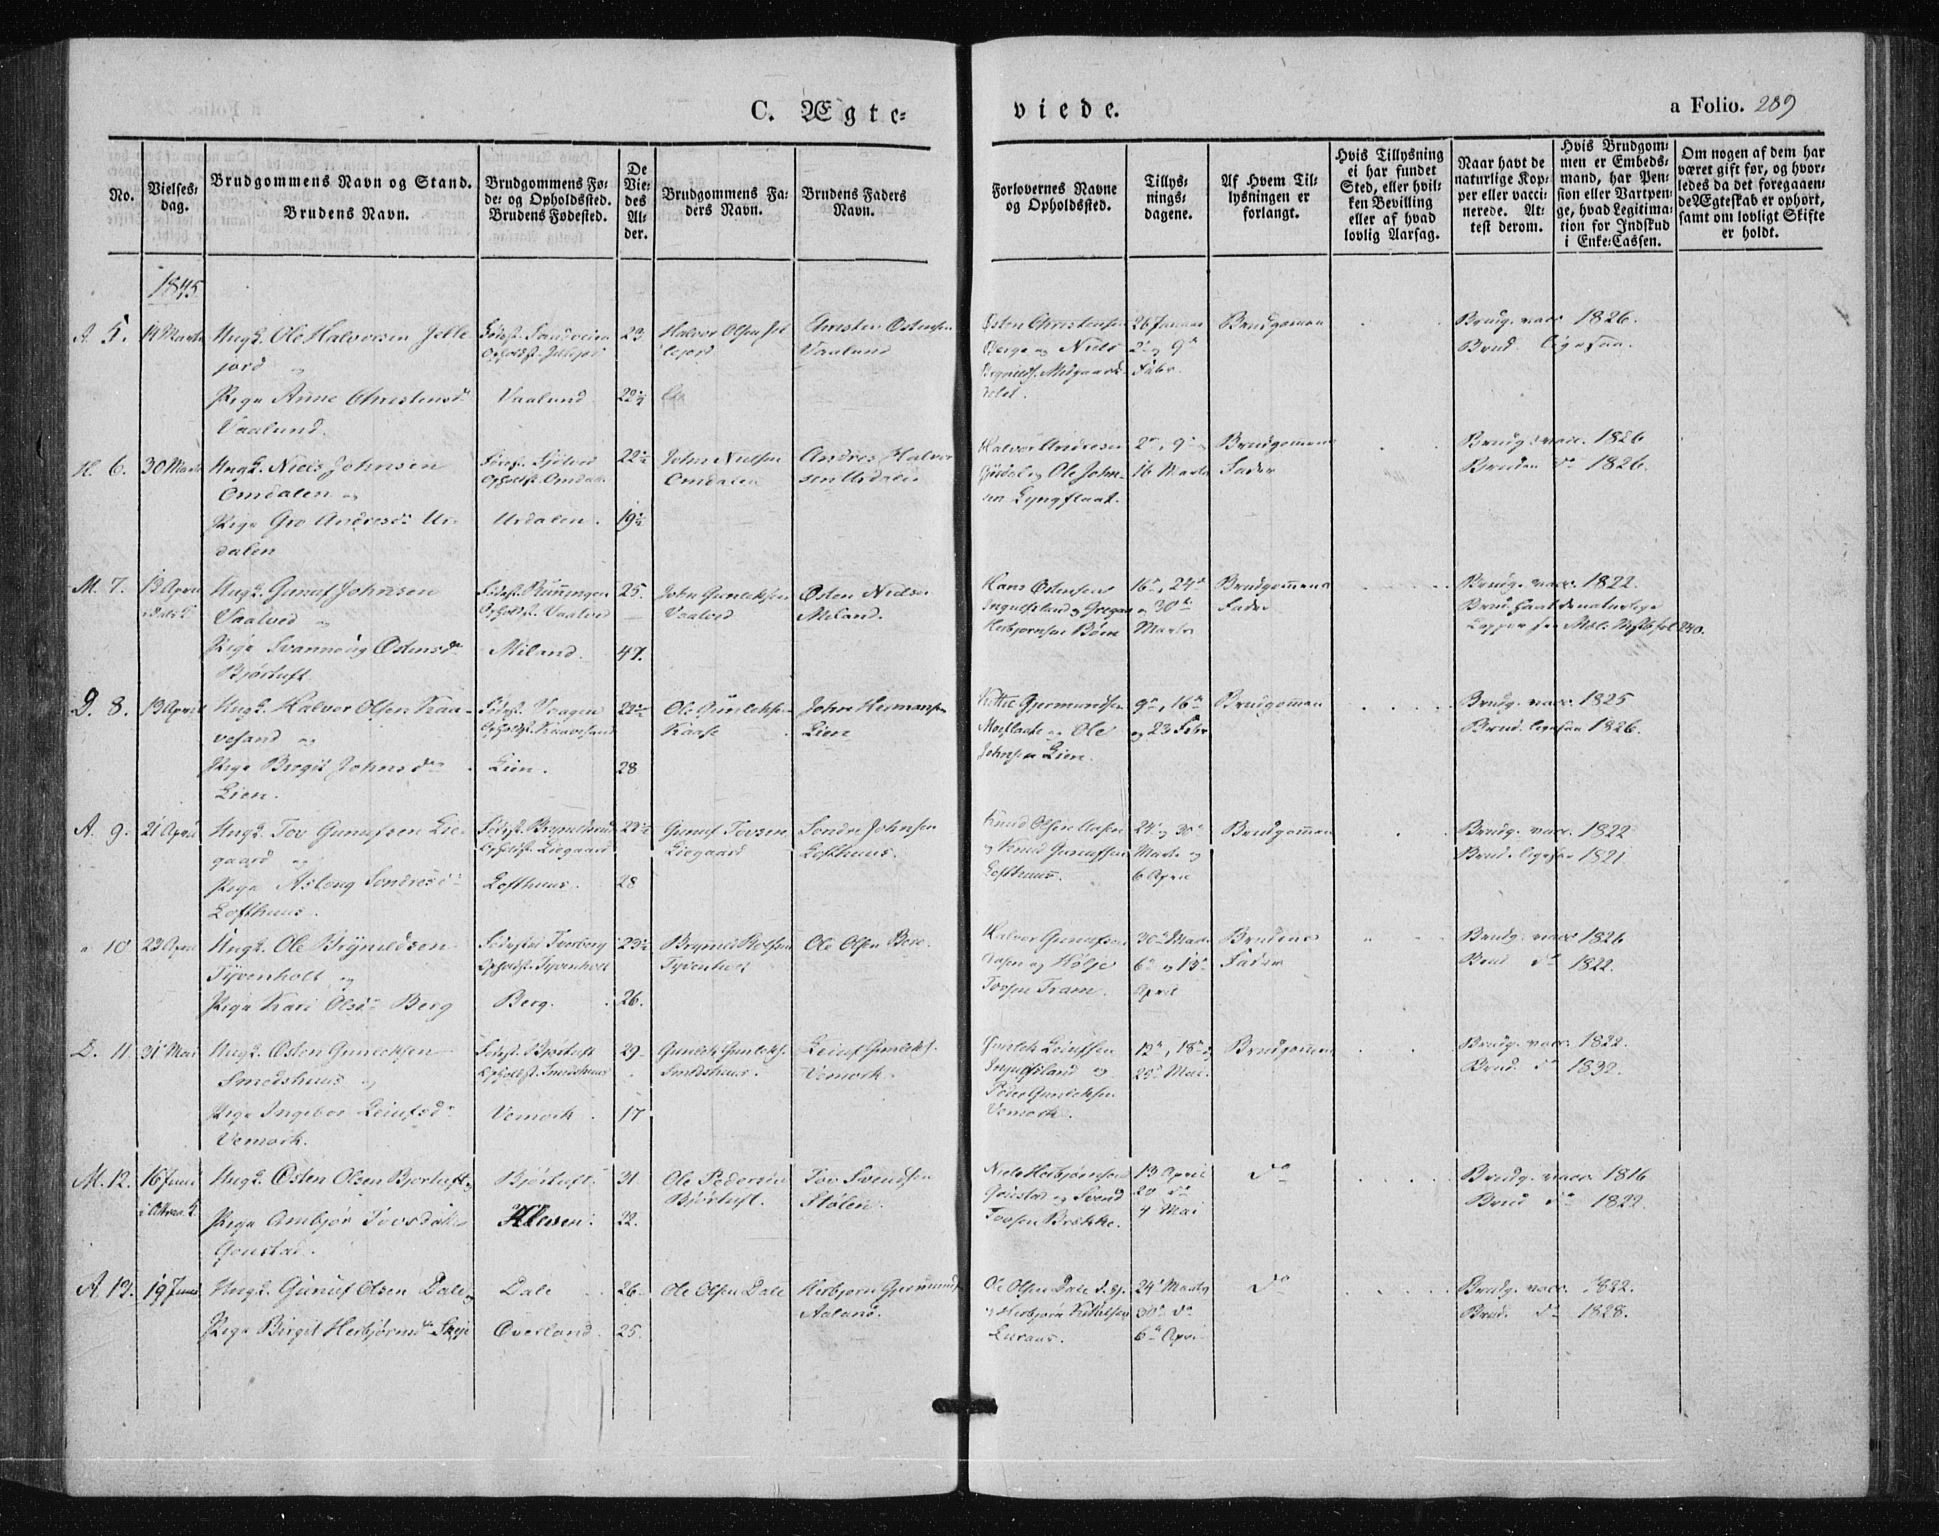 C. Ægte=
viede.
a Folio. 289
No.
Vielses=
dag.
Brudgommens Navn og Stand.
Brudens Navn.
Brudgommens Fø=
de= og Opholdssted.
Brudens Fødested.
De
Vie=
des
Al=
der.
Brudgommens Fa=
ders Navn.
Brudens Faders
Navn.
Forlovernes Navne
og Opholdssted.
Tillys=
nings=
dagene.
Af Hvem Til=
lysningen er
forlangt.
Hvis Tillysning
ei har fundet
Sted, eller hvil=
ken Bevilling
eller af hvad
lovlig Aarsag.
Naar havt de
naturlige Kop=
per eller vacci=
nerede. At=
test derom.
Hvis Brudgom=
men er Embeds=
mand, har Pen=
sion eller Vartpen=
ge, hvad Legitima=
tion for Indskud
i Enke=Cassen.
Om nogen af dem har
været gift før, og hvor=
ledes da det foregaaen=
de Ægteskab er ophørt,
samt om lovligt Skifte
er holdt.
1845
A. 5. 14 Marts Ungk. Ole Halvorsen Jelle
jord og
Pige Anne Christensdr
Vaalund.
Fødest. Sandveien
Opholdst. Jellejord
Vaalund
23
22½
Halvor Olsen Jel
lejord
Christen Østensen
Vaalund
Østen Christensen
Berge og Niels
Brynilds. Midgaard
26 Januar
2 og 9
Febr.
Brudgommen
Brudg. vacc. 1826.
Brud. ligesaa.
H. 6. 30 Marts Ungk. Niels Johnsen
Omdalen og
Pige Gro Andresdr Ur=
dalen
Opholdst. Omdal
Urdalen.
22½
19½
John Nielsen
Omdalen
Andres Halvor
sen Urdalen
Halvor Andresen
og Ole John=
sen Lyngflaat.
2, 9
16 Marts
Brudgommens
Fader
Brudg. vacc. 1826
Bruden do 1826.
M. 7. 13 April Ungk. Gunuf Johnsen
Vaalved og
Pige Svannaug Østensdr
Bjørtuft
Opholdst. Vaalved
Miland.
25.
47.
John Gunleksen
Vaalved
Østen Nielsen
Miland.
Hans Østensen
Ingulfsland og Gregar
Herbjørnsen Bøen
16, 24
og 30
Marts
Brudgommens
Fader
Brudg. vacc. 1822.
Brud havt de naturlige
Kopper 240.
D. 8. 13 April Ungk. Halvor Olsen Kaa=
vesand og
Pige Birgit Johnsdr
Lien.
Fødest. Vaagen
Opholdst. Kaavesand
Lien.
22½
28
Ole Gunleksen
Kaase
John Hermansen
Lien
Kittil Gjermundsen
og Ole
Johnsen Lien.
9, 16
og 23 Febr
Brudgommen
Brudg. vacc. 1825
Brud. ligesaa 1826.
A. 9. 21 April Ungk. Tov Gunufsen Lie=
gaard og
Pige Aslaug Sondresdr
Lofthuus.
Opholdst. Liegaard
Lofthuus.
28
Gunuf Tovsen
Liegaard
Sondre Johnsen
Lofthuus.
Knud Olsen Aasen
og Knud Gunufsen
Lofthuus.
24 og 30
Marts og
6 April
Brudgommen
Brudg. vacc. 1822
Brud. ligesaa 1821
10 23 April Ungk. Ole Brynildsen
Tyvenholt og
Pige Kari Olsdr Berg
Fødested Tverberg
Opholdst. Tyvenholt
Berg.
23½
26.
Brynild Rolfsen
Tyvenholt
Ole Olsen Berg.
Halvor Gunufsen
Aasen og Hølje
Tovsen Fram.
30 Marts
6 og 13
April
Brudens
Fader
Brudg. vacc. 1826
Brud do 1822.
D. 11. 31 Mai Ungk. Østen Gunleksen
Smedshuus og
Pige Ingebor Leiufsdr
Vemork.
Fødest. Bjørtuft
Opholdst. Smedshuus
Vemork.
29
17
Gunlek Gunleks.
Smedshuus.
Leiuf Gunleks.
Vemork.
Gunlek Leiufsen
Ingulfsland og
Peder Gunleksen
Vemork.
12, 18 og
25 Mai.
Brudgommen
Brudg. vacc. 1822.
Brud. do 1832.
M. 12. 16 Juni Ungk. Østen Olsen Bjørtuft og
Pige Ambjør Tovsdr
Goustad.
Bjørtuft
31
22.
Ole Pedersen
Bjørtuft.
Tov Svendsen
Stølen.
Niels Herbjørnsen
Goustad og Svend
Tovsen Brække.
13 April
20 do
4 Mai
do
Brudg. vacc. 1816
Brud do 1822.
A. 13. 19 Juni Ungk. Gunuf Olsen Dale og
Pige Birgit Herbjørnsdr Skeje
Dale
Overland.
26
25.
Ole Olsen Dale
Herbjørn Gjermunds
Aaland.
Ole Olsen Dale
og Herbjørn Kittilsen
Luraas.
24 Marts
30 do
6 April
do
Brudg. vacc. 1822.
Brud. do 1828.